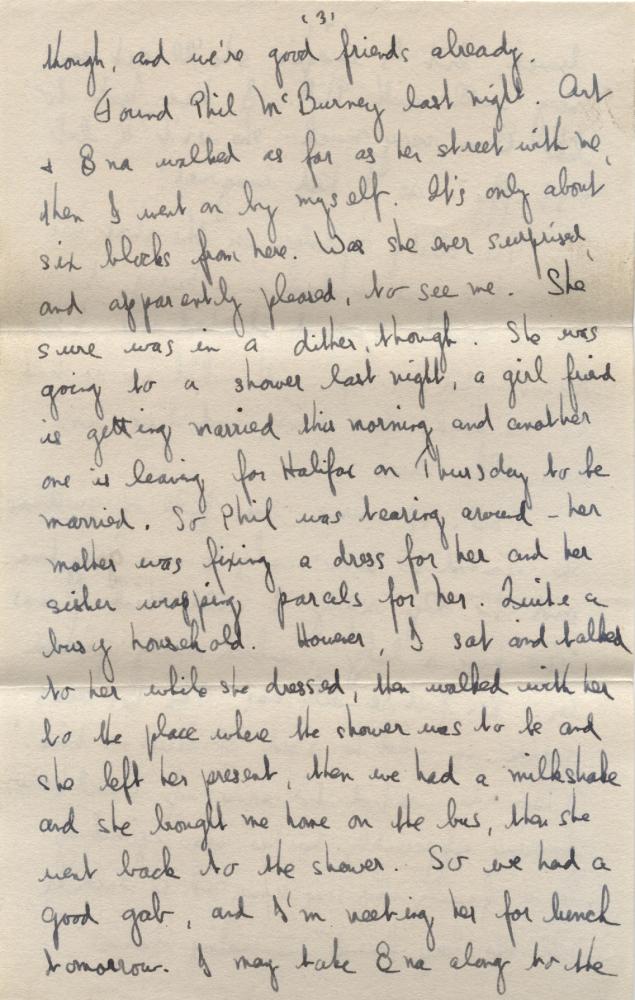 (3)
though, and we're good friends already.
Found Phil McBurney last night. Art
+ Ena walked as far as her street with me,
then I went on by myself. It's only about
six blocks from here. Was she ever surprised,
and apparently pleased, to see me. She
sure was in a dither, though. She was
going to a shower last night, a girl friend
is getting married this morning and another
one is leaving for Halifax on Thursday to be
married. So Phil was tearing around - her
mother was fixing a dress for her and her
sister wrapping parcels for her. Quite a
busy household. However, I sat and talked
to her while she dressed, then walked with her
to the place where the shower was to be and
she left her present, then we had a milkshake
and she brought me home on the bus, then she
went back to the shower. So we had a
good gab, and I'm meeting her for lunch
tomorrow. I may take Ena along to the